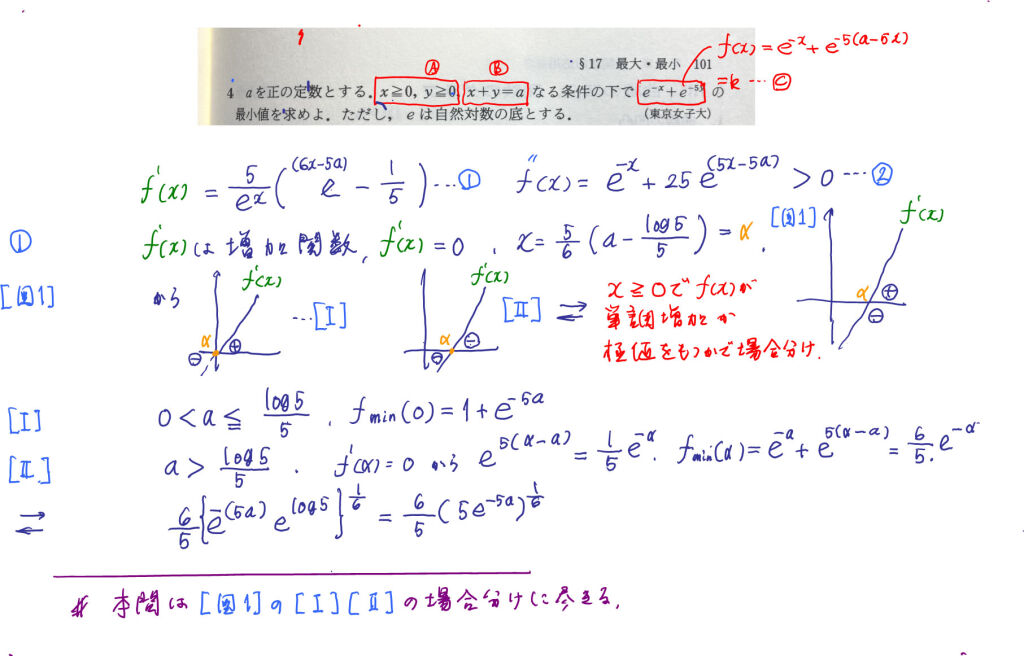 f(x) = e^{-x} + e^{-5(a-5x)}
= k … Ⓒ
Ⓐ Ⓑ
・§17 最大・最小 101
4 aを正の定数とする. x≧0, y≧0, x+y=a なる条件の下で e^{-x}+e^{-5y} の
最小値を求めよ. ただし, e は自然対数の底とする. (東京女子大)
f'(x) = 5/e^x ( e^{(6x-5a)} - 1/5 ) … ① f''(x) = e^{-x} + 25 e^{(5x-5a)} > 0 … ②
① f'(x) は増加関数, f'(x) = 0 , x = 5/6 ( a - log5/5 ) = α . [図1] f'(x)
[図1] から f'(x) … [Ⅰ] f'(x) [Ⅱ] ⇄ x ≧ 0 で f(x) が
単調増加か
極値をもつかで場合分け.
α ⊖ ⊕ α ⊖ ⊖ α ⊕ ⊖
[Ⅰ] 0 < a ≦ log5/5 . f_min(0) = 1 + e^{-5a}
[Ⅱ] a > log5/5 . f'(α) = 0 から e^{5(α-a)} = 1/5 e^{-α} . f_min(α) = e^{-a} + e^{5(α-a)} = 6/5 . e^{-α}
⇄ 6/5 { e^{-(5a)} e^{log5} }^{1/6} = 6/5 ( 5e^{-5a} )^{1/6}
# 本問は [図1] の [Ⅰ] [Ⅱ] の場合分けに尽きる.